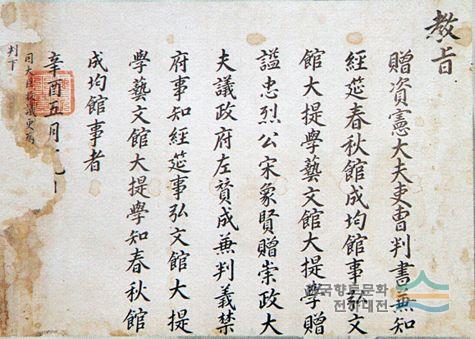 教旨
贈資憲大夫吏曹判書兼知
經筵春秋館成均館事弘文
館大提學藝文館大提學贈
諡忠烈公宋象賢贈崇政大
夫議政府左贊成兼判義禁
府事知經筵事弘文館大提
學藝文館大提學知春秋館
成均館事者
辛酉五月
因大臣
判下
한국향토문화
전자대전